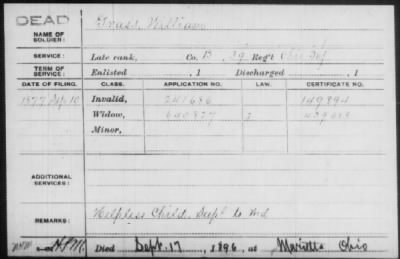 DEAD
NAME OF SOLDIER: Grass, William
SERVICE: Late rank, Co. B, 39 Reg't Ohio Inf
TERM OF SERVICE: Enlisted , 1 Discharged , 1
DATE OF FILING. CLASS. APPLICATION NO. LAW. CERTIFICATE NO.
1877 Sep. 10 Invalid, 241686 149894
Widow, 640827
Minor,
ADDITIONAL SERVICES:
REMARKS: Helpless Child. Supl to Wid
Died Sept. 17, 1896, at Marietta Ohio